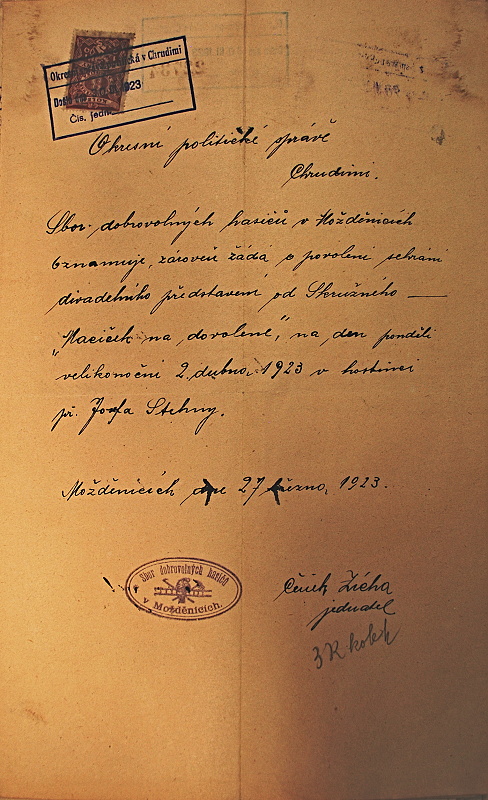 Okresní politická v Chrudimi
Čís. jedn.
Okresní politické správě
Chrudimi.
Sbor dobrovolných hasičů v Možděnicích
oznamuje, zároveň žádá o povolení sehrání
divadelního představení od Skružného —
"Macíček na dovolené", na den pondělí
velikonoční 2. dubna, 1923 v hostinci
př. Josefa Stehny.
Možděnicích dne 27 března, 1923.
Sbor dobrovolných hasičů
v Možděnicích.
Čeněk Zícha
jednatel
3 K kolek